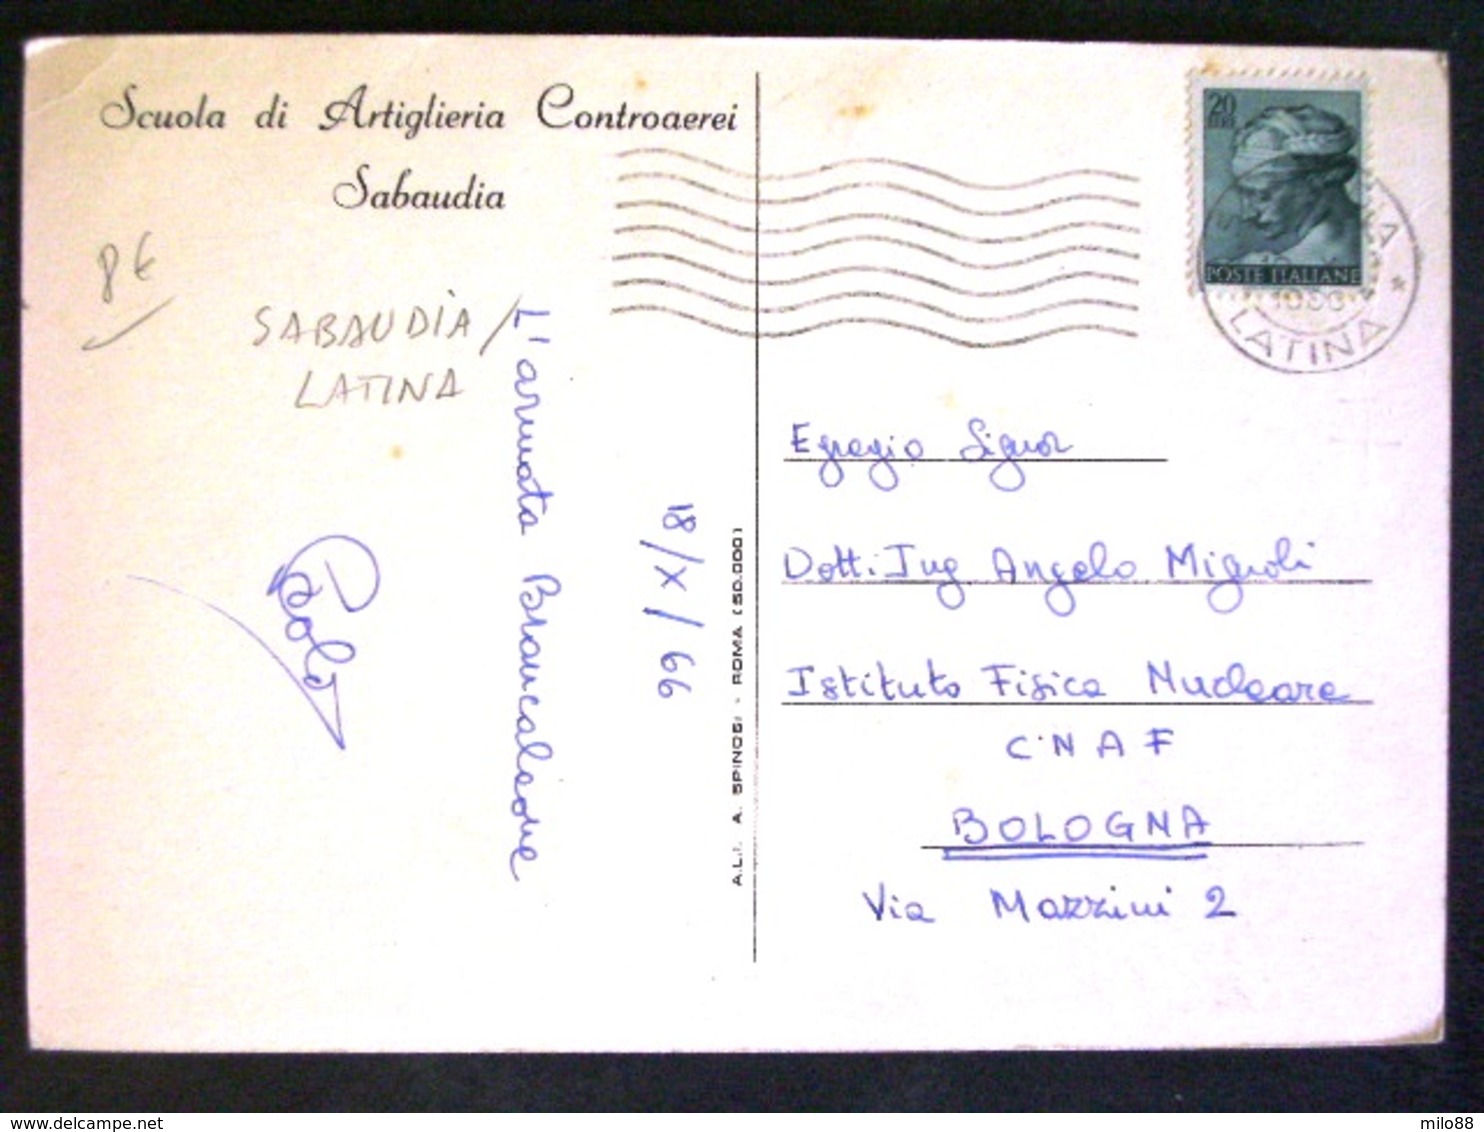 Scuola di Artiglieria Controaerei
Sabaudia
8 €
SABAUDIA /
LATINA
L'armata Brancaleone
Paolo
18/X/66
A.L.I. A. SPINOSI - ROMA (50.000)
20
LIRE
POSTE ITALIANE
LATINA *
Egregio Signor
Dott. Ing Angelo Mignoli
Istituto Fisica Nucleare
C.N A F
BOLOGNA
Via Mazzini 2
delcampe.net
milo88